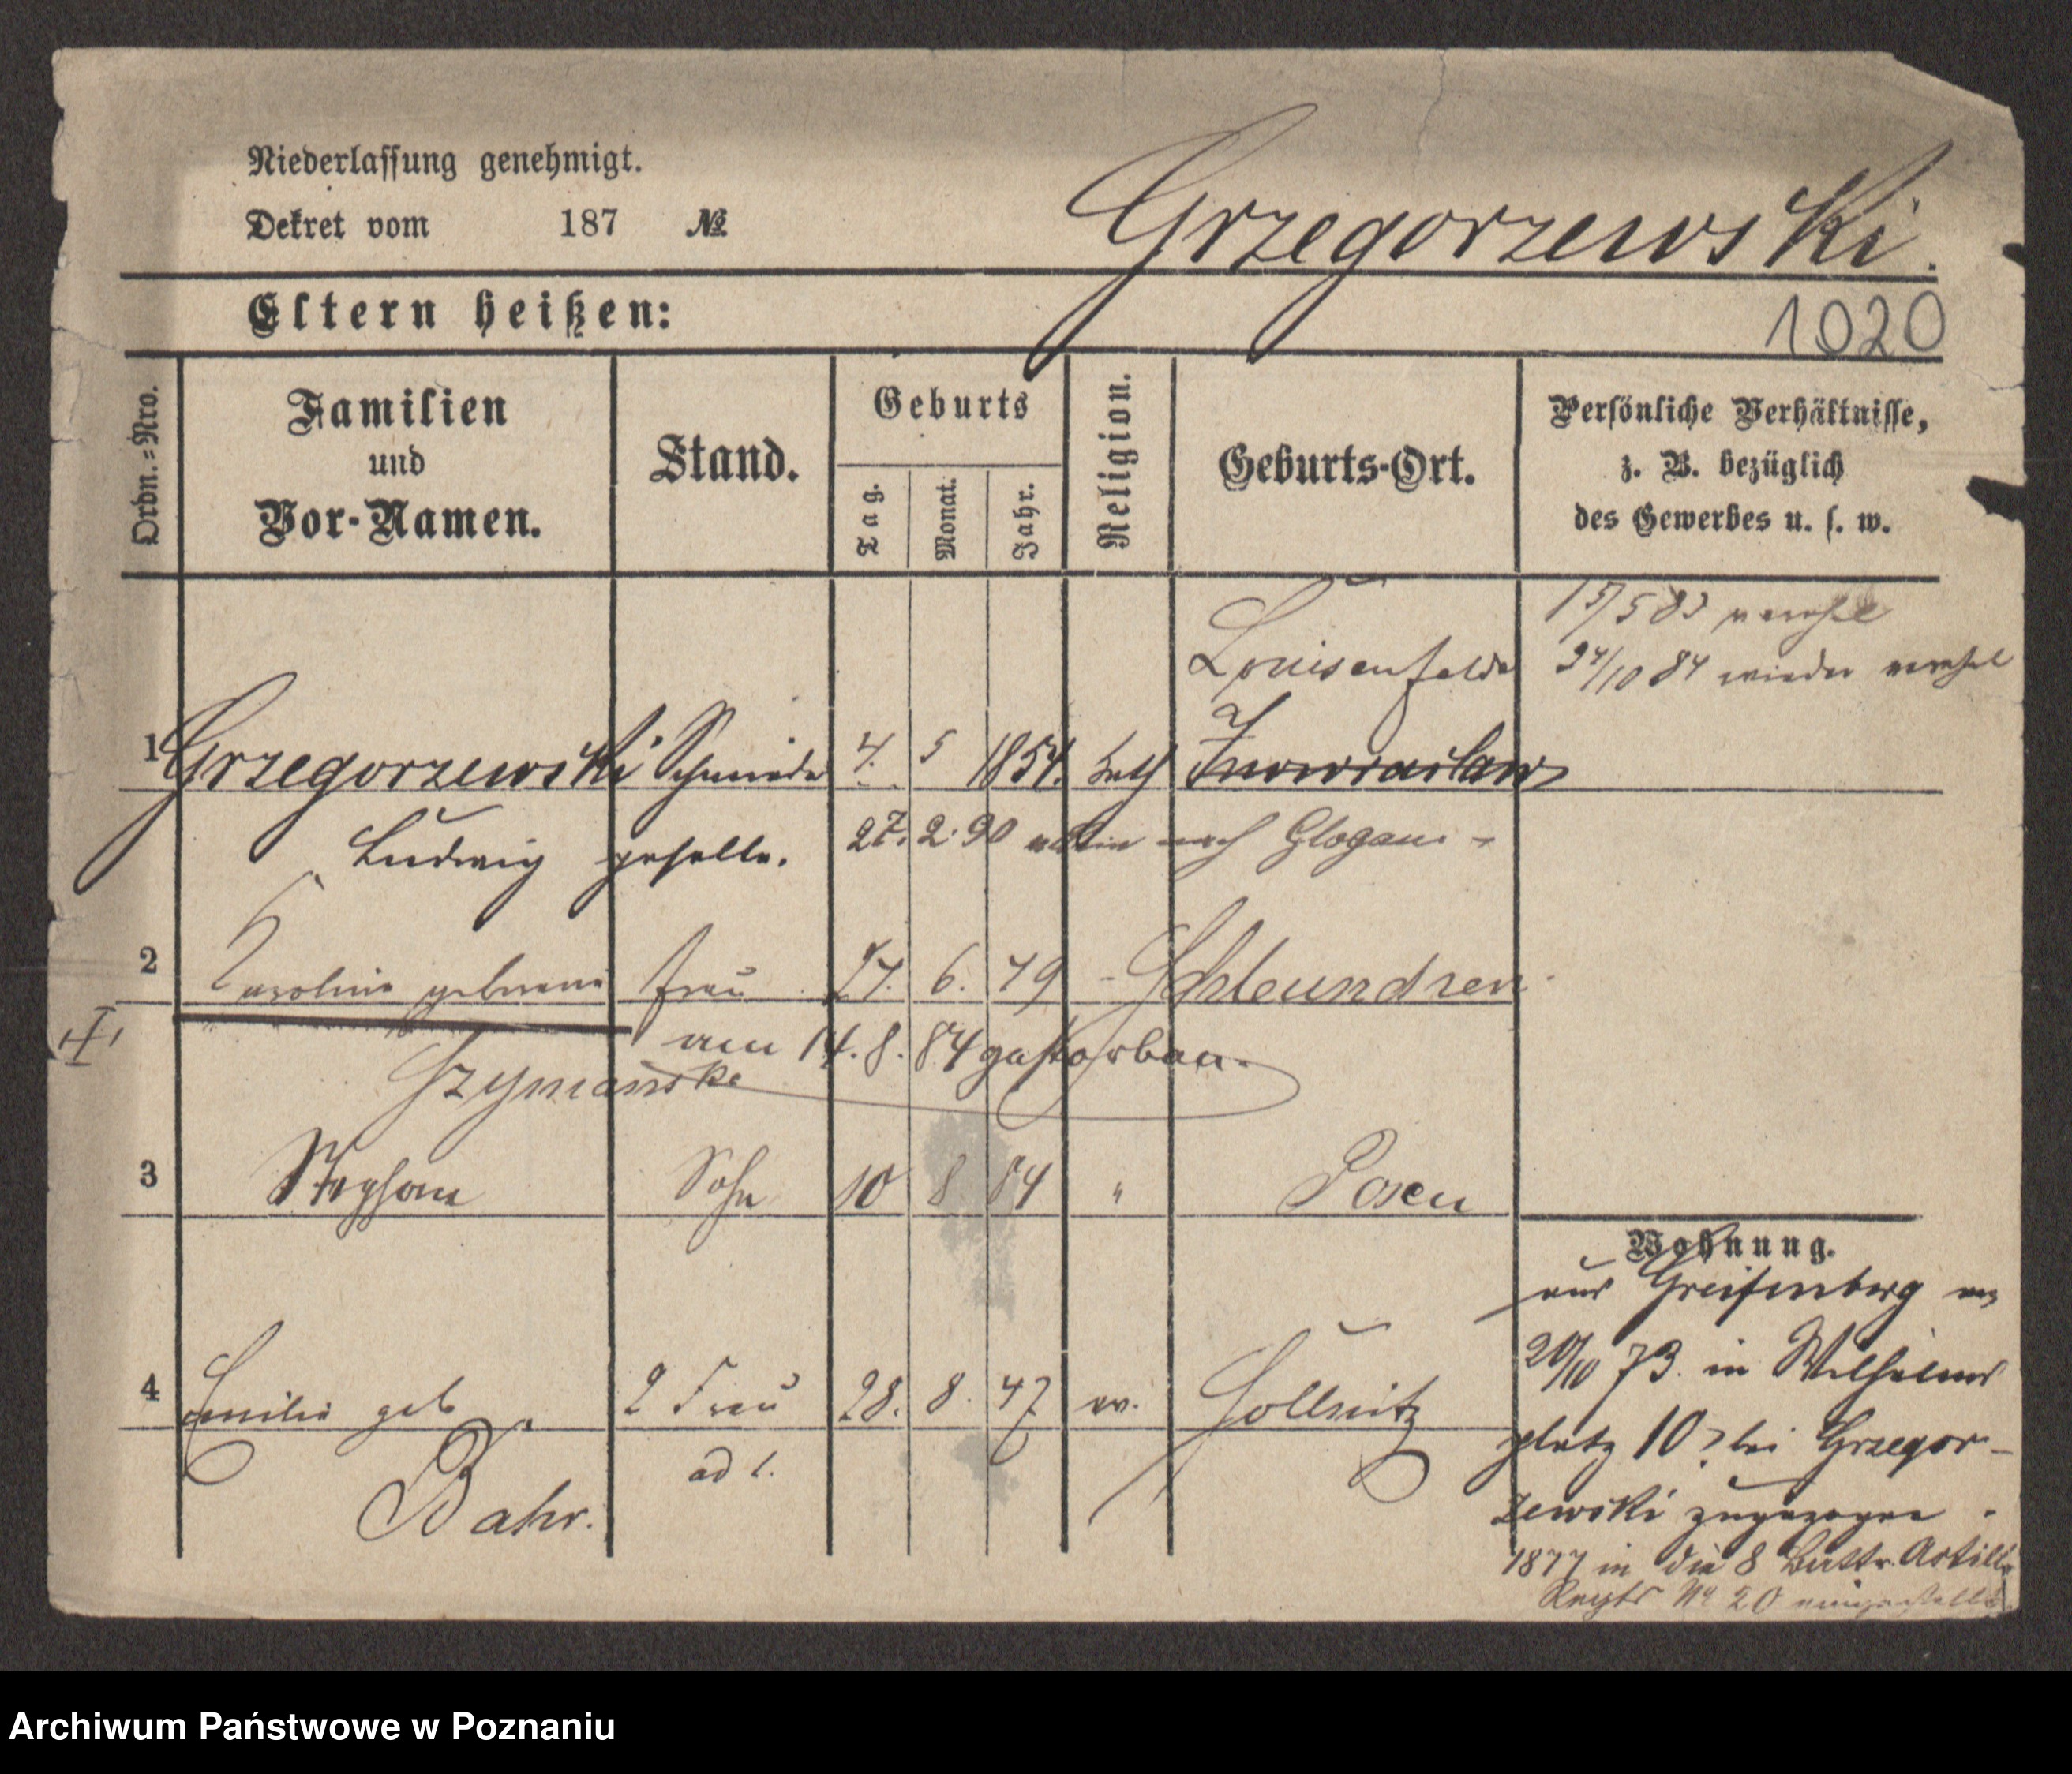 Niederlassung genehmigt.
Dekret vom 187 №
Grzegorzewski.
Eltern heißen:
1020
Ordn.=Nro.
Familien
und
Vor-Namen.
Stand.
Geburts
Tag.
Monat.
Jahr.
Religion.
Geburts-Ort.
Persönliche Verhältnisse,
z. B. bezüglich
des Gewerbes u. s. w.
15/5 83 verehel
Louisenfelde 24/10 84 wieder verehel
1 Grzegorzewski Schmiede 4. 5 1854. kath Inowrazlaw
Ludwig geselle. 27. 2. 90 allein nach Glogau
2 Karolina geborene Frau 27. 6. 79 Schleundzen
am 14. 8. 84 gestorben.
Szymanska
3 Stephan Sohn 10 8 84 " Posen
Wohnung.
aus Greifenberg
20/10 73. in Wilhelms
4 Emilie geb 2 Frau 28. 8. 47 ev. Gollnitz
platz 10 bei Grzegor-
ad 1.
Bahr.
zewski zugezogen
1877 in die 8 Battr. Artill.
Regts No 20 eingestellt
Archiwum Państwowe w Poznaniu